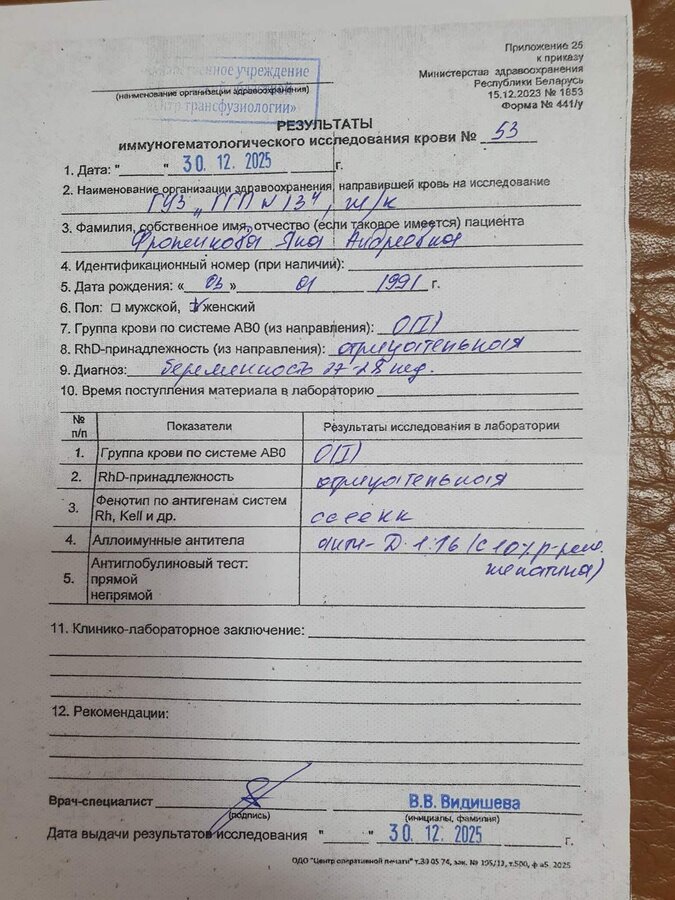 Приложение 25
к приказу
Министерства здравоохранения
Республики Беларусь
15.12.2023 № 1853
Форма № 441/у
учреждение
(наименование организации здравоохранения)
трансфузиологии»
РЕЗУЛЬТАТЫ
иммуногематологического исследования крови № 53
1. Дата: "____" 30. 12. 2025 г.
2. Наименование организации здравоохранения, направившей кровь на исследование
ГУЗ „ГГП №13", ж/к
3. Фамилия, собственное имя, отчество (если таковое имеется) пациента
Яна Андреевна
4. Идентификационный номер (при наличии):
5. Дата рождения: «03» 01 1991 г.
6. Пол: □ мужской, ☑ женский
7. Группа крови по системе АВ0 (из направления): 0(I)
8. RhD-принадлежность (из направления): отрицательная
9. Диагноз: беременность 27-28 нед.
10. Время поступления материала в лабораторию
№ п/п Показатели Результаты исследования в лаборатории
1. Группа крови по системе АВ0 0(I)
2. RhD-принадлежность отрицательная
3. Фенотип по антигенам систем Rh, Kell и др. ccee kk
4. Аллоимунные антитела анти-D 1:16 (с 10% р-ром
желатина)
5. Антиглобулиновый тест:
прямой
непрямой
11. Клинико-лабораторное заключение:
12. Рекомендации:
Врач-специалист В.В. Видишева
(подпись) (инициалы, фамилия)
Дата выдачи результатов исследования "____" 30. 12. 2025 г.
ОДО "Центр оперативной печати" т.30 05 74, зак. № 195/13, т.500, ф а5. 2025